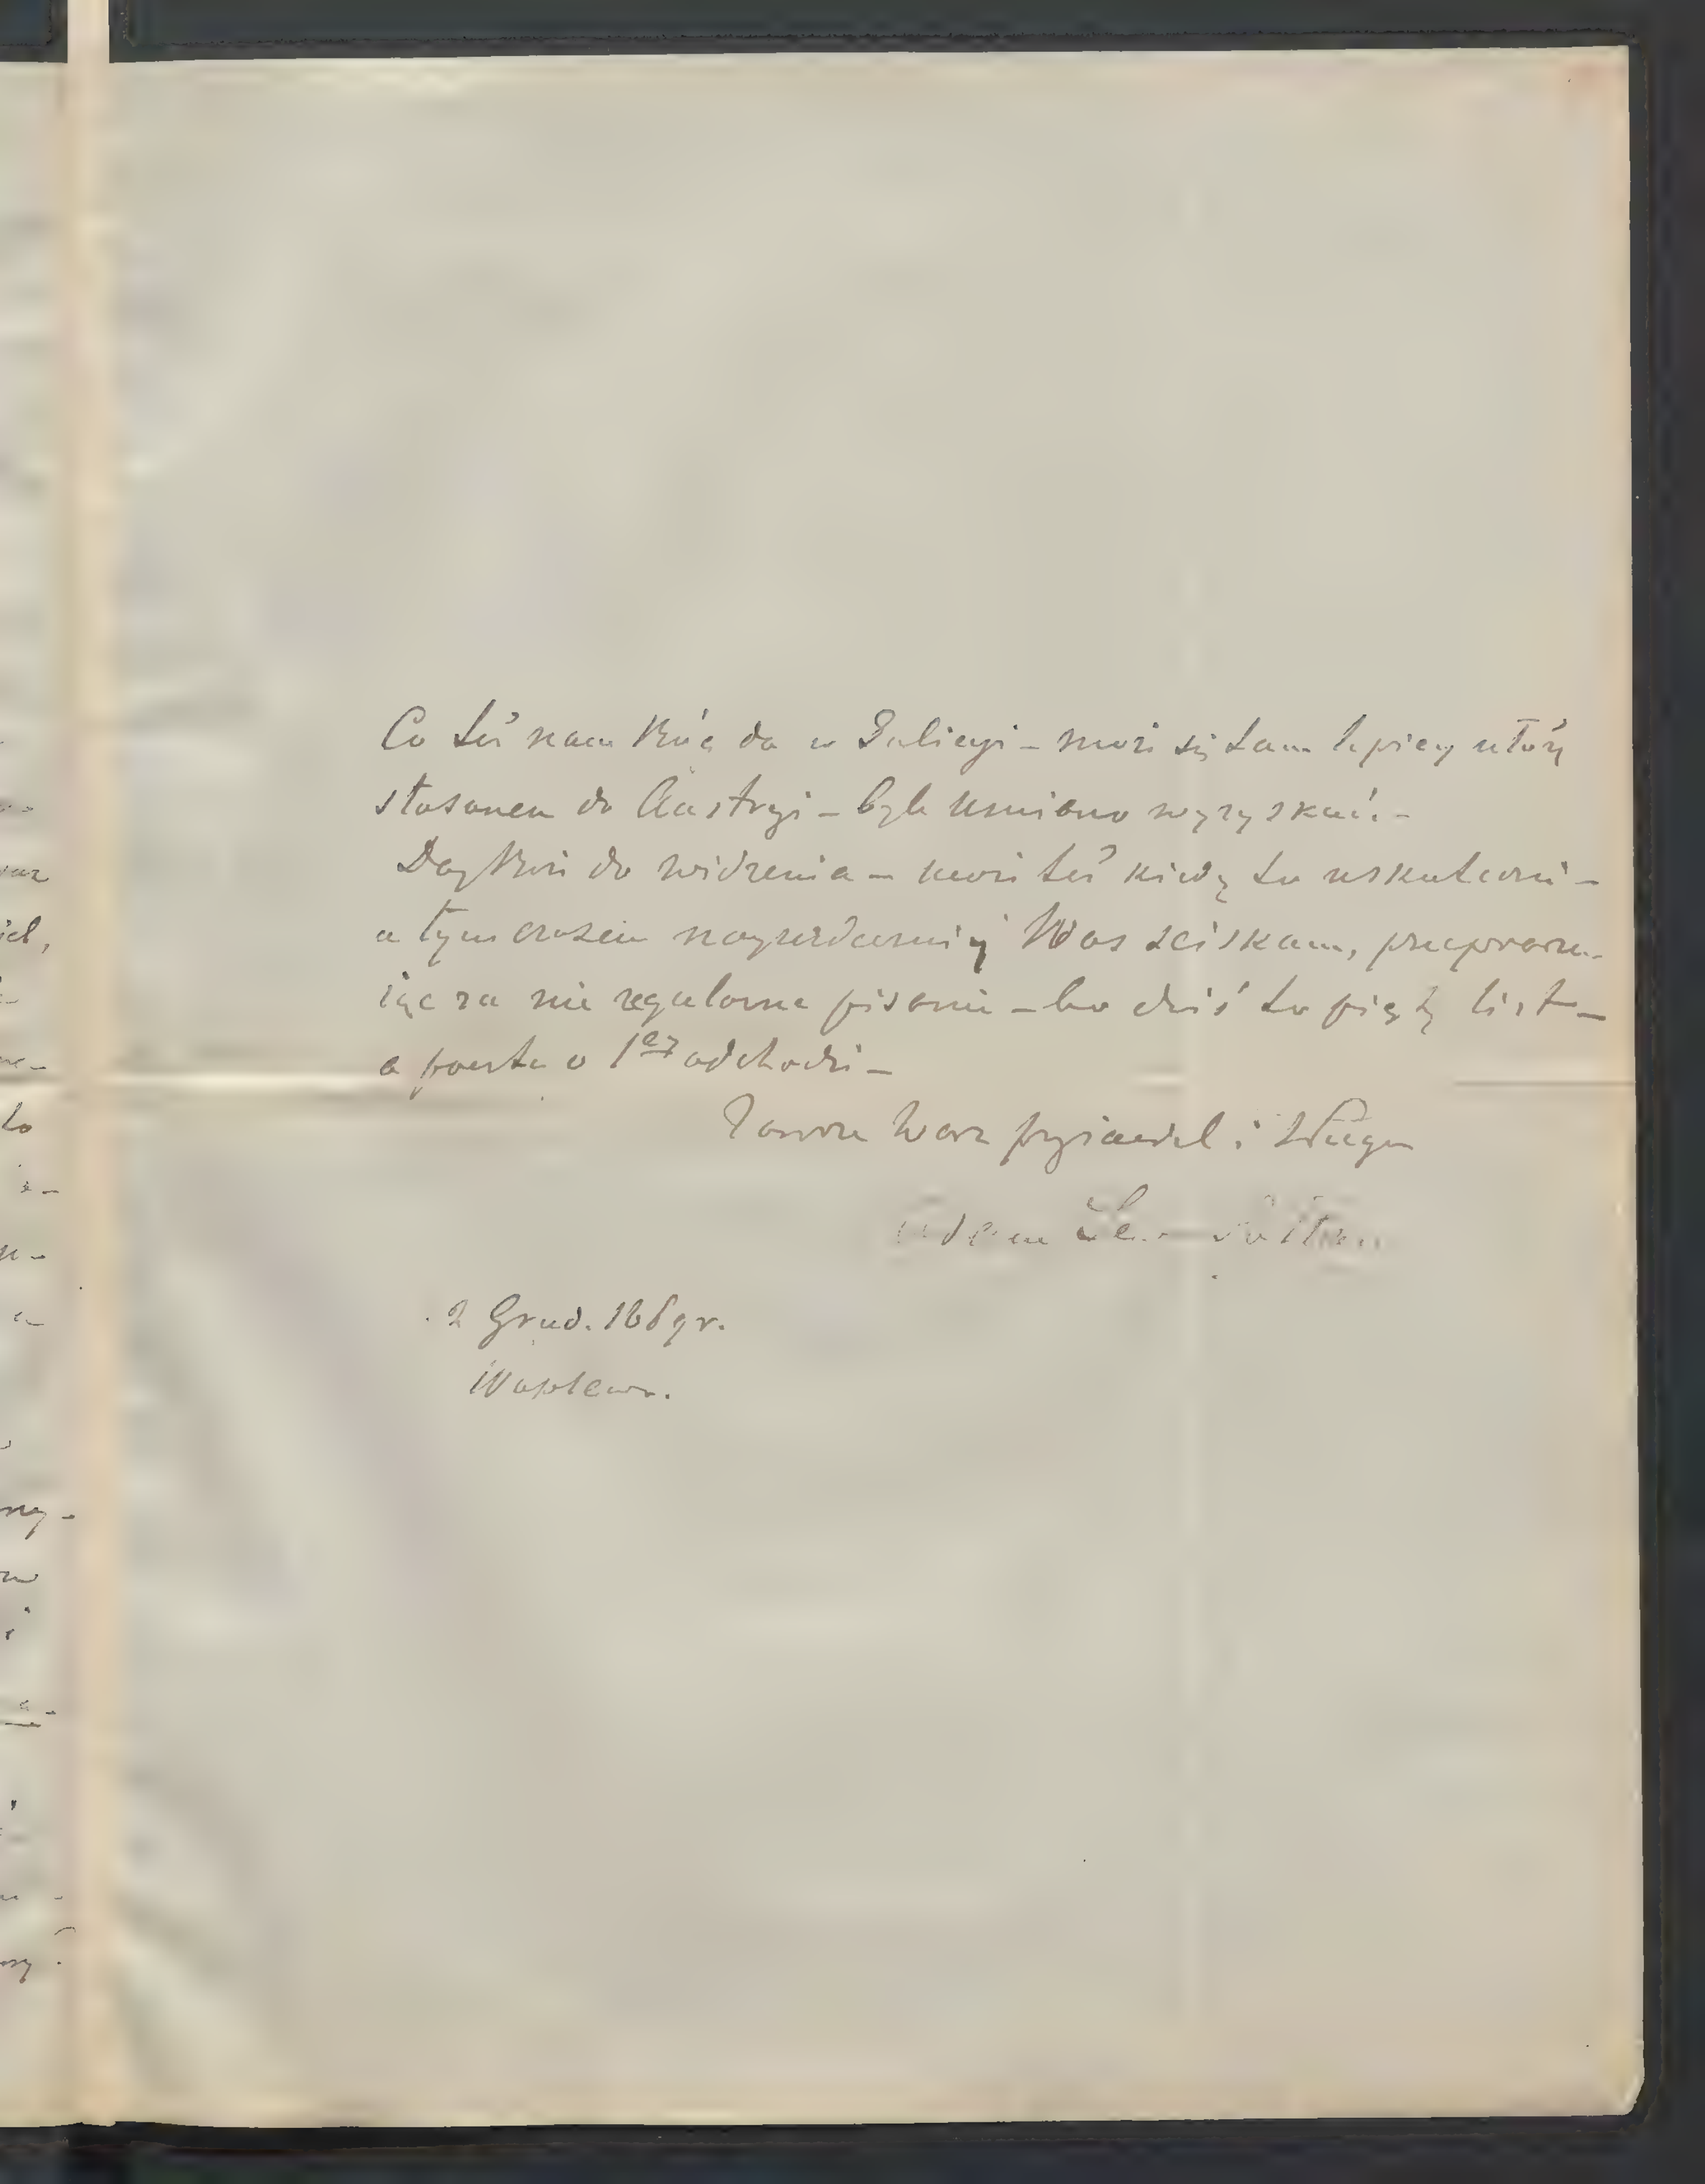 Co też nam Bóg da w Galicyi – może się tam lepiey ułoży
stosunek do Austryi – byle umiano wyzyskać. –
Day Boże do widzenia – może też kiedy to uskuteczni –
a tym czasem nayserdeczniey Was sciskam, przeprasza-
iąc za nie regularne pisanie – bo dziś to piąty list –
a poczta o 1ey odchodzi –
Zawsze Wasz przyiaciel i sługa
Adam
2 Grud. 1869 r.
Waplewo.